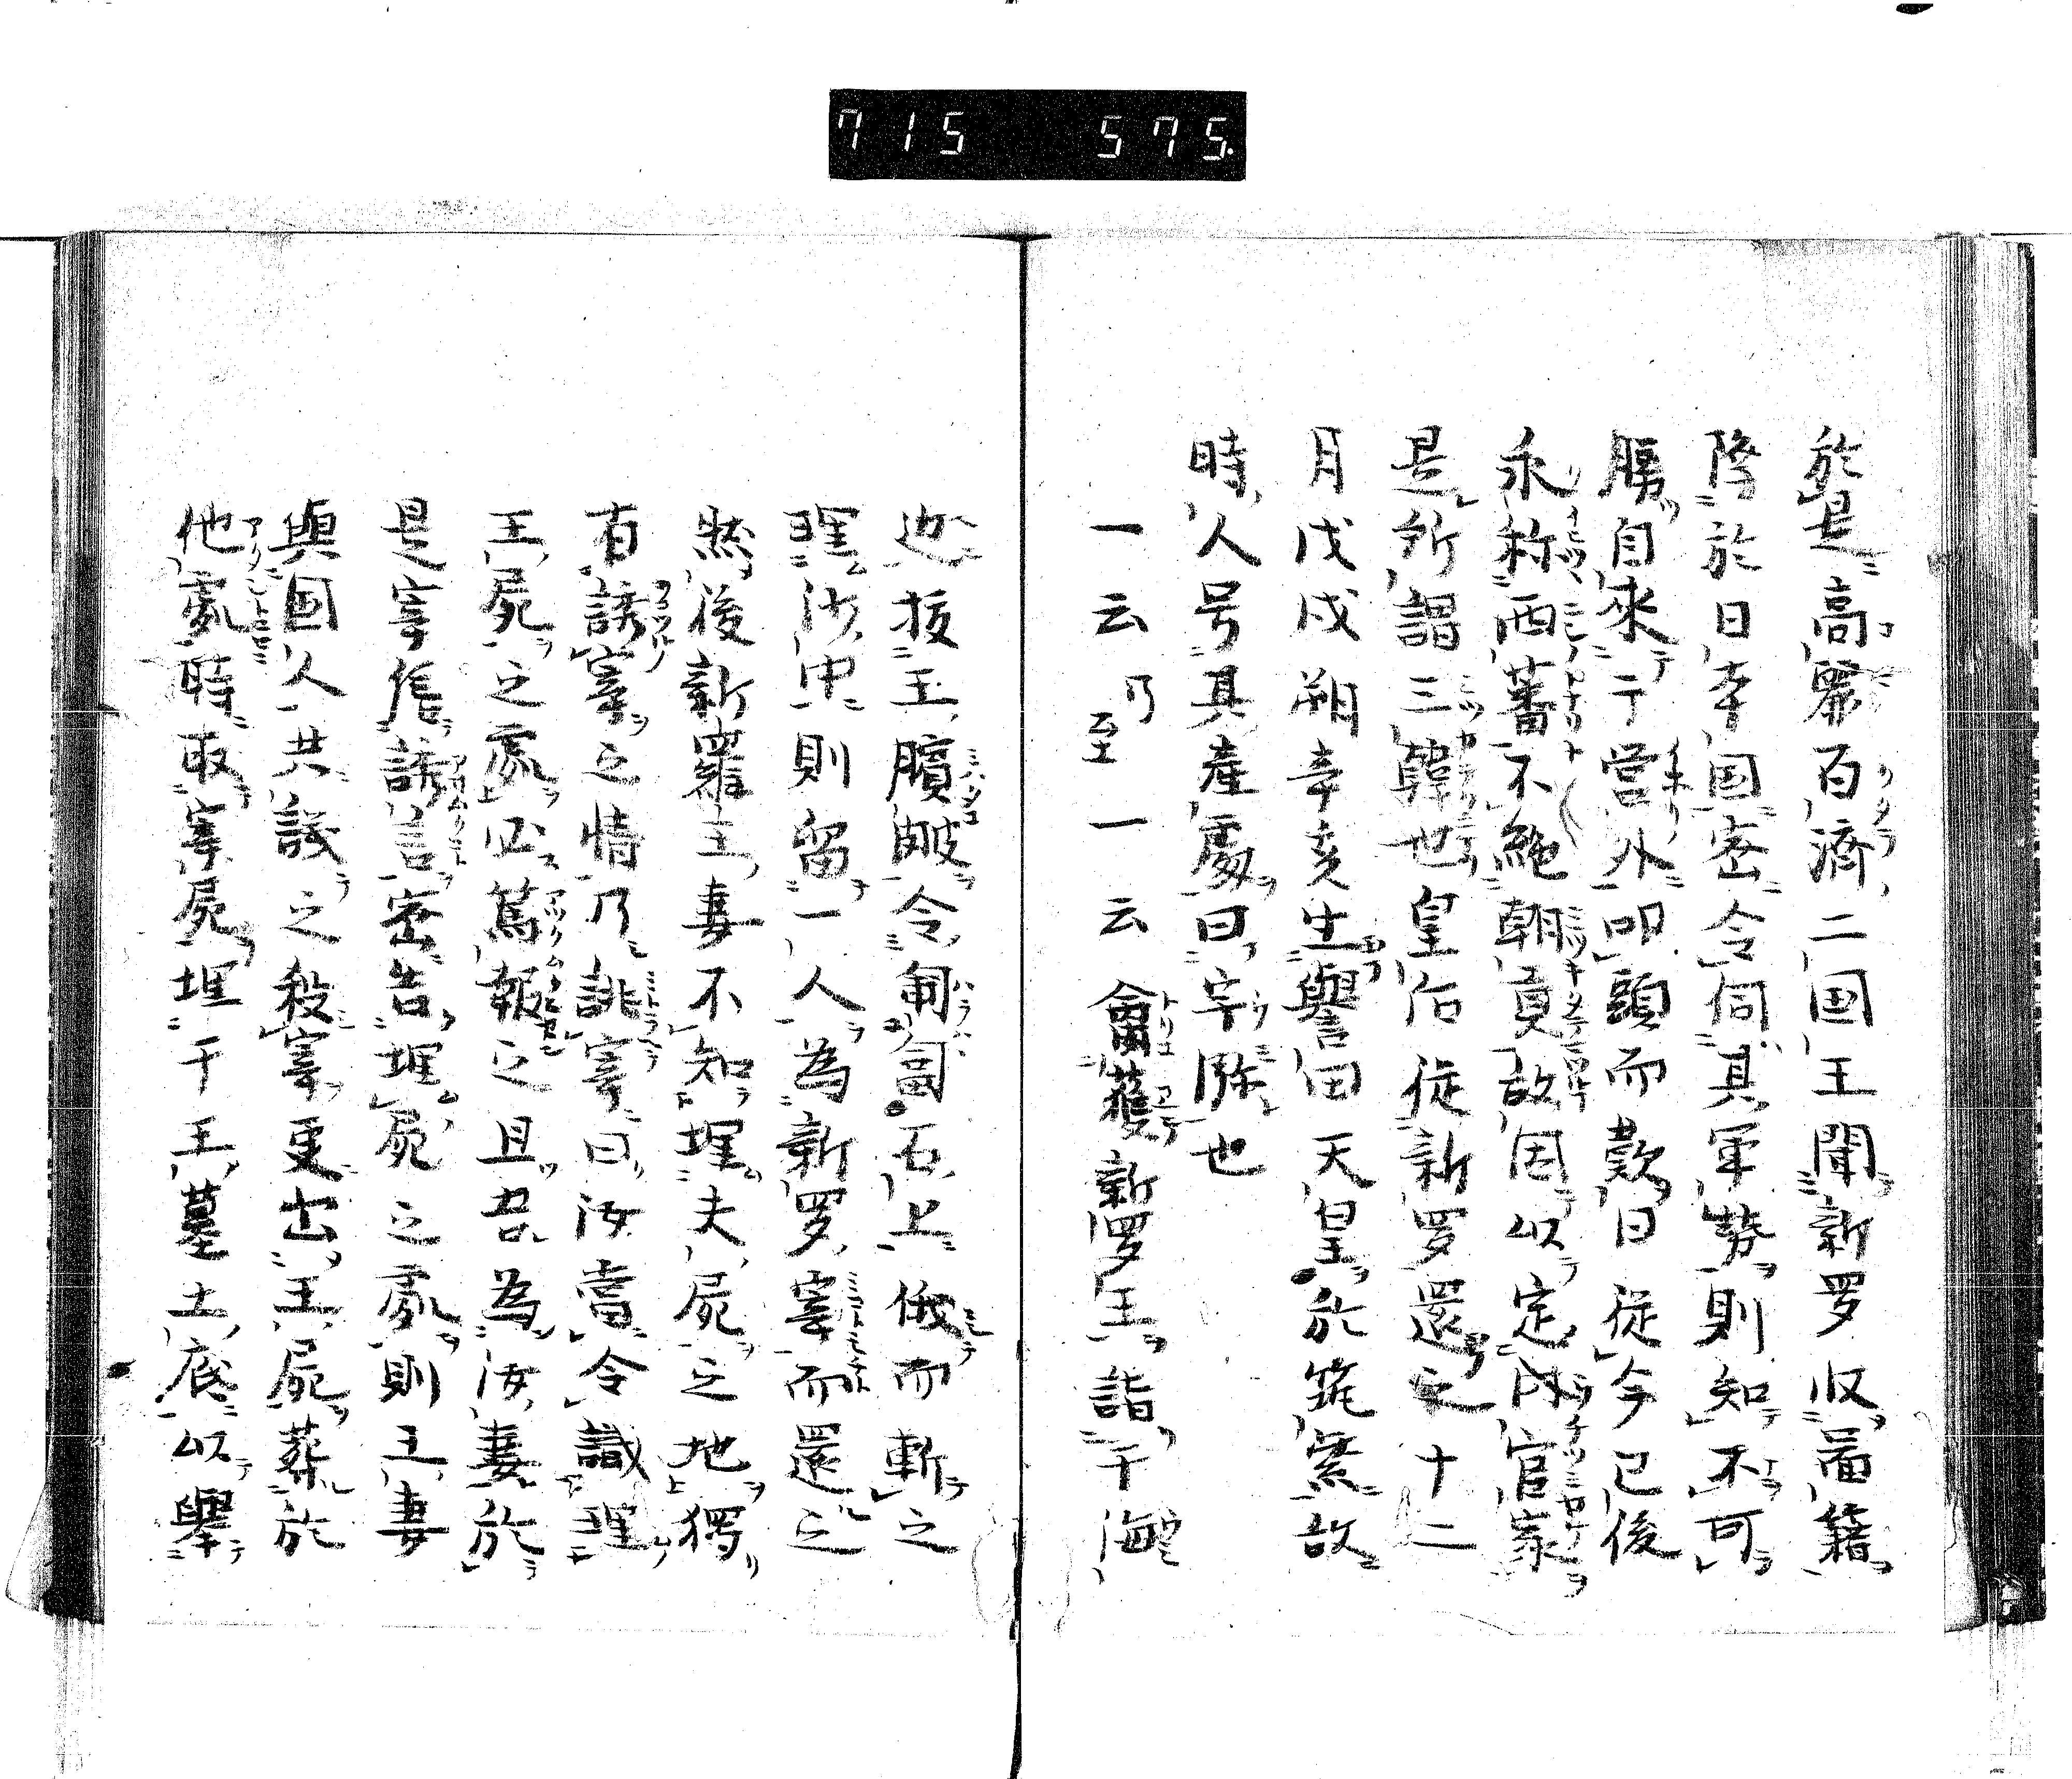 715 575.
於是高麗百濟二国王聞新罗收啚籍
降於日本国密令伺其軍勢則知不可
勝自來于営外叩頭而歎曰従今已後
永称西蕃不絶朝貢故因以定内官家
是所謂三韓也皇后従新罗還之十二
月戊戌朔辛亥生譽田天皇於筑紫故
時人号其産處曰宇瀰也
一云乃至一云禽獲新罗王詣于海
辺抜王臏䏢令匍匐石上俄而斬之
埋沙中則留一人為新罗宰而還之
然後新羅王妻不知埋夫屍之地獨
有誘宰之情乃誂宰曰汝當令識埋
王屍之處必篤報之且吾為汝妻於
是宰信誘言密告埋屍之處則王妻
與国人共議之殺宰更出王屍葬於
他處時取宰屍埋于王墓土底以舉